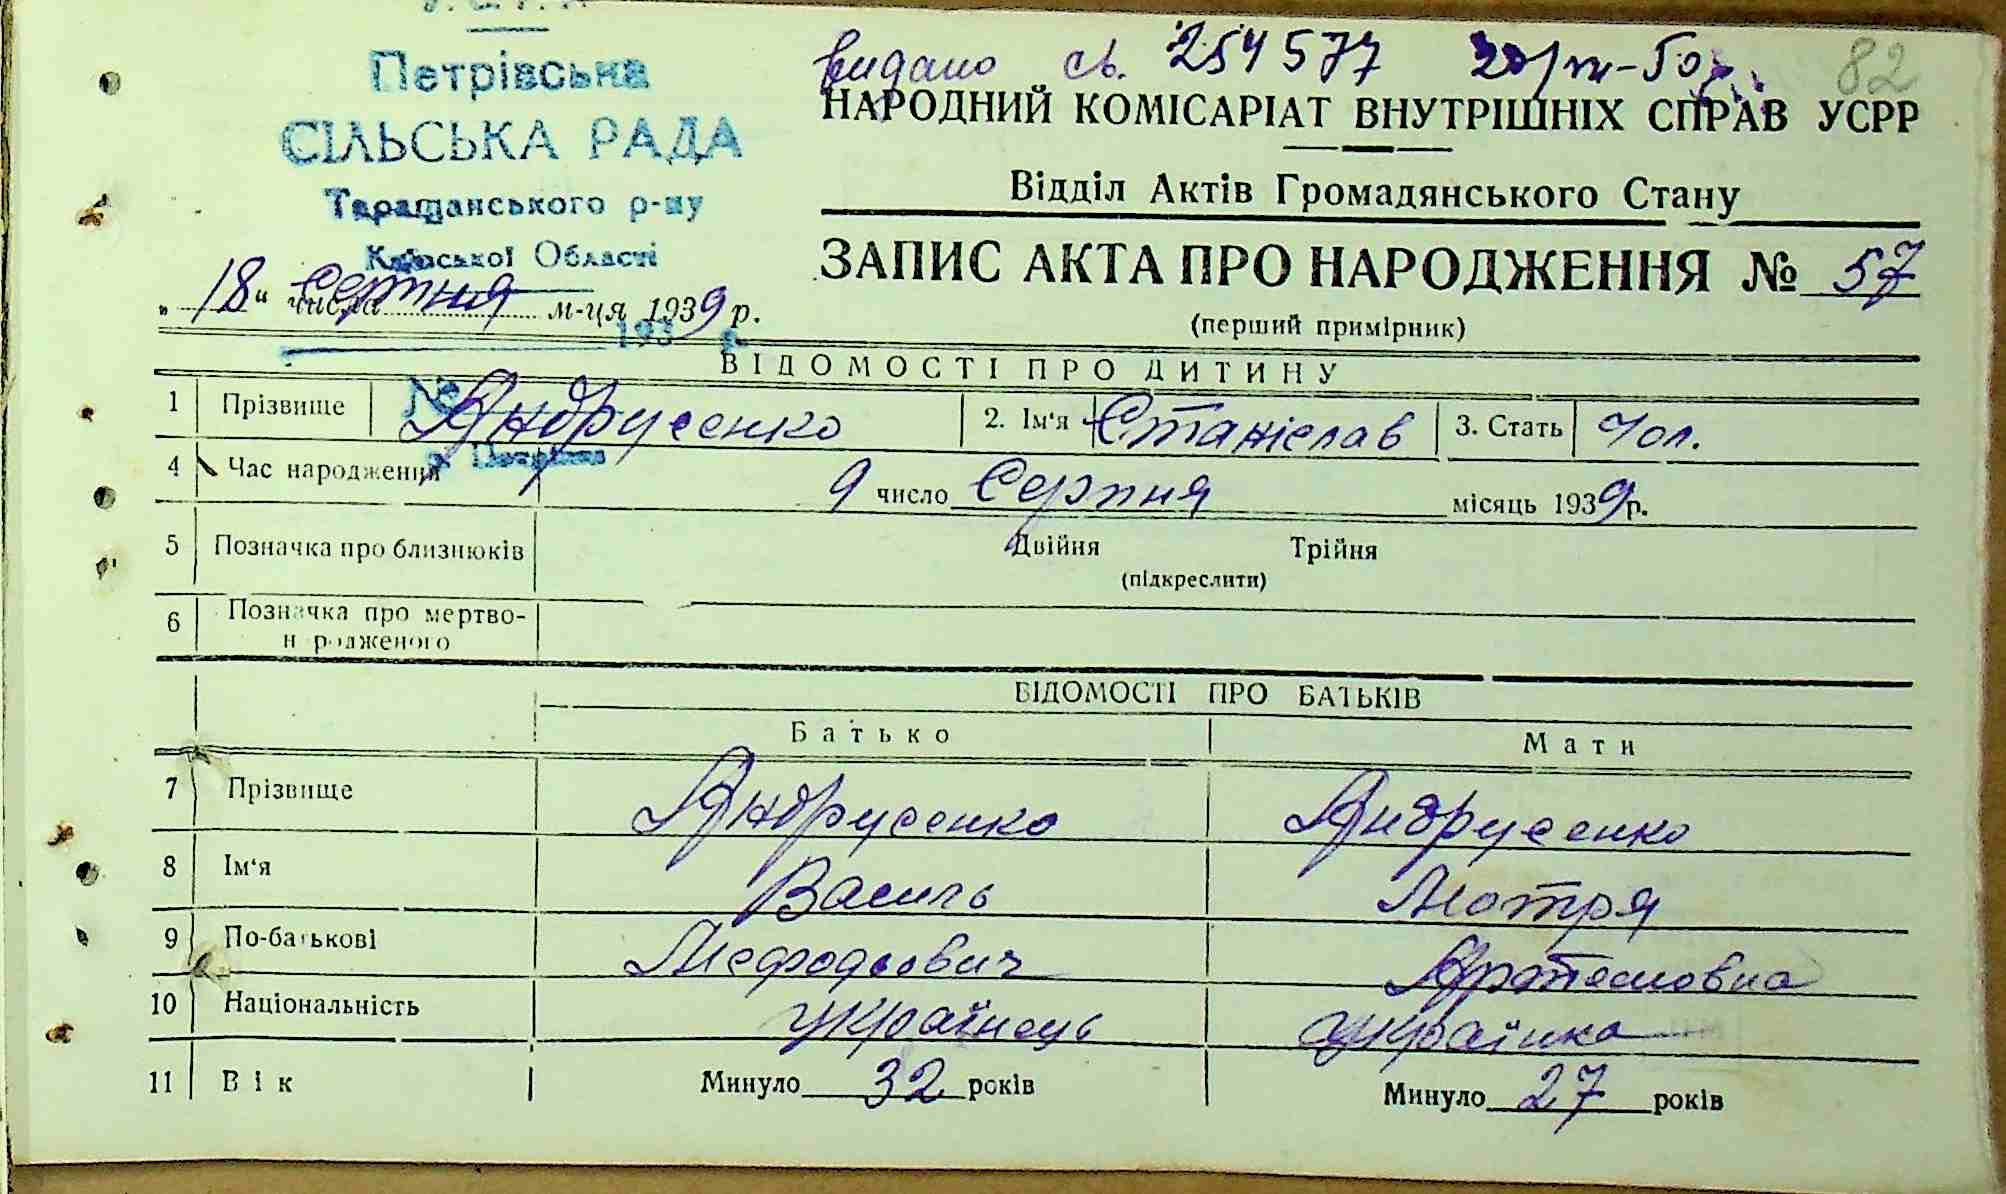 У.С.Р.Р.
Петрівська
СІЛЬСЬКА РАДА
Таращанського р-ну
Київської Області
193 р.
№
с. Петрівка
видано св. 254577 20/III-50р. 82
НАРОДНИЙ КОМІСАРІАТ ВНУТРІШНІХ СПРАВ УСРР
Відділ Актів Громадянського Стану
ЗАПИС АКТА ПРО НАРОДЖЕННЯ № 57
(перший примірник)
„18“ числа Серпня м-ця 1939 р.
ВІДОМОСТІ ПРО ДИТИНУ
1 Прізвище Андрусенко 2. Ім'я Станіслав 3. Стать Чол.
4 Час народження 9 число Серпня місяць 1939р.
5 Позначка про близнюків Двійня Трійня
(підкреслити)
6 Позначка про мертво-
народженого
ВІДОМОСТІ ПРО БАТЬКІВ
Батько Мати
7 Прізвище Андрусенко Андрусенко
8 Ім'я Василь Мотря
9 По-батькові Мефодьович
10 Національність українець українка
11 Вік Минуло 32 років Минуло 27 років